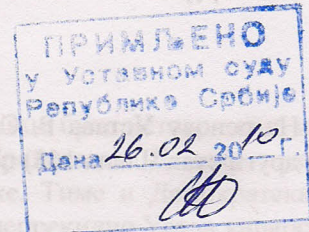 ПРИМЉЕНО
у Уставном суду
Републике Србије
Дана 26.02 2010 г.